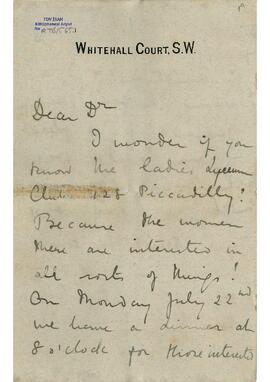 TOPFOTO
WHITEHALL COURT, S.W.
Dear Dr
I wonder if you
know the ladies Lyceum
Club 128 Piccadilly!
Because the women
there are interested in
all sorts of things!
On Monday July 22nd
we have a dinner at
8 o'clock for those interested